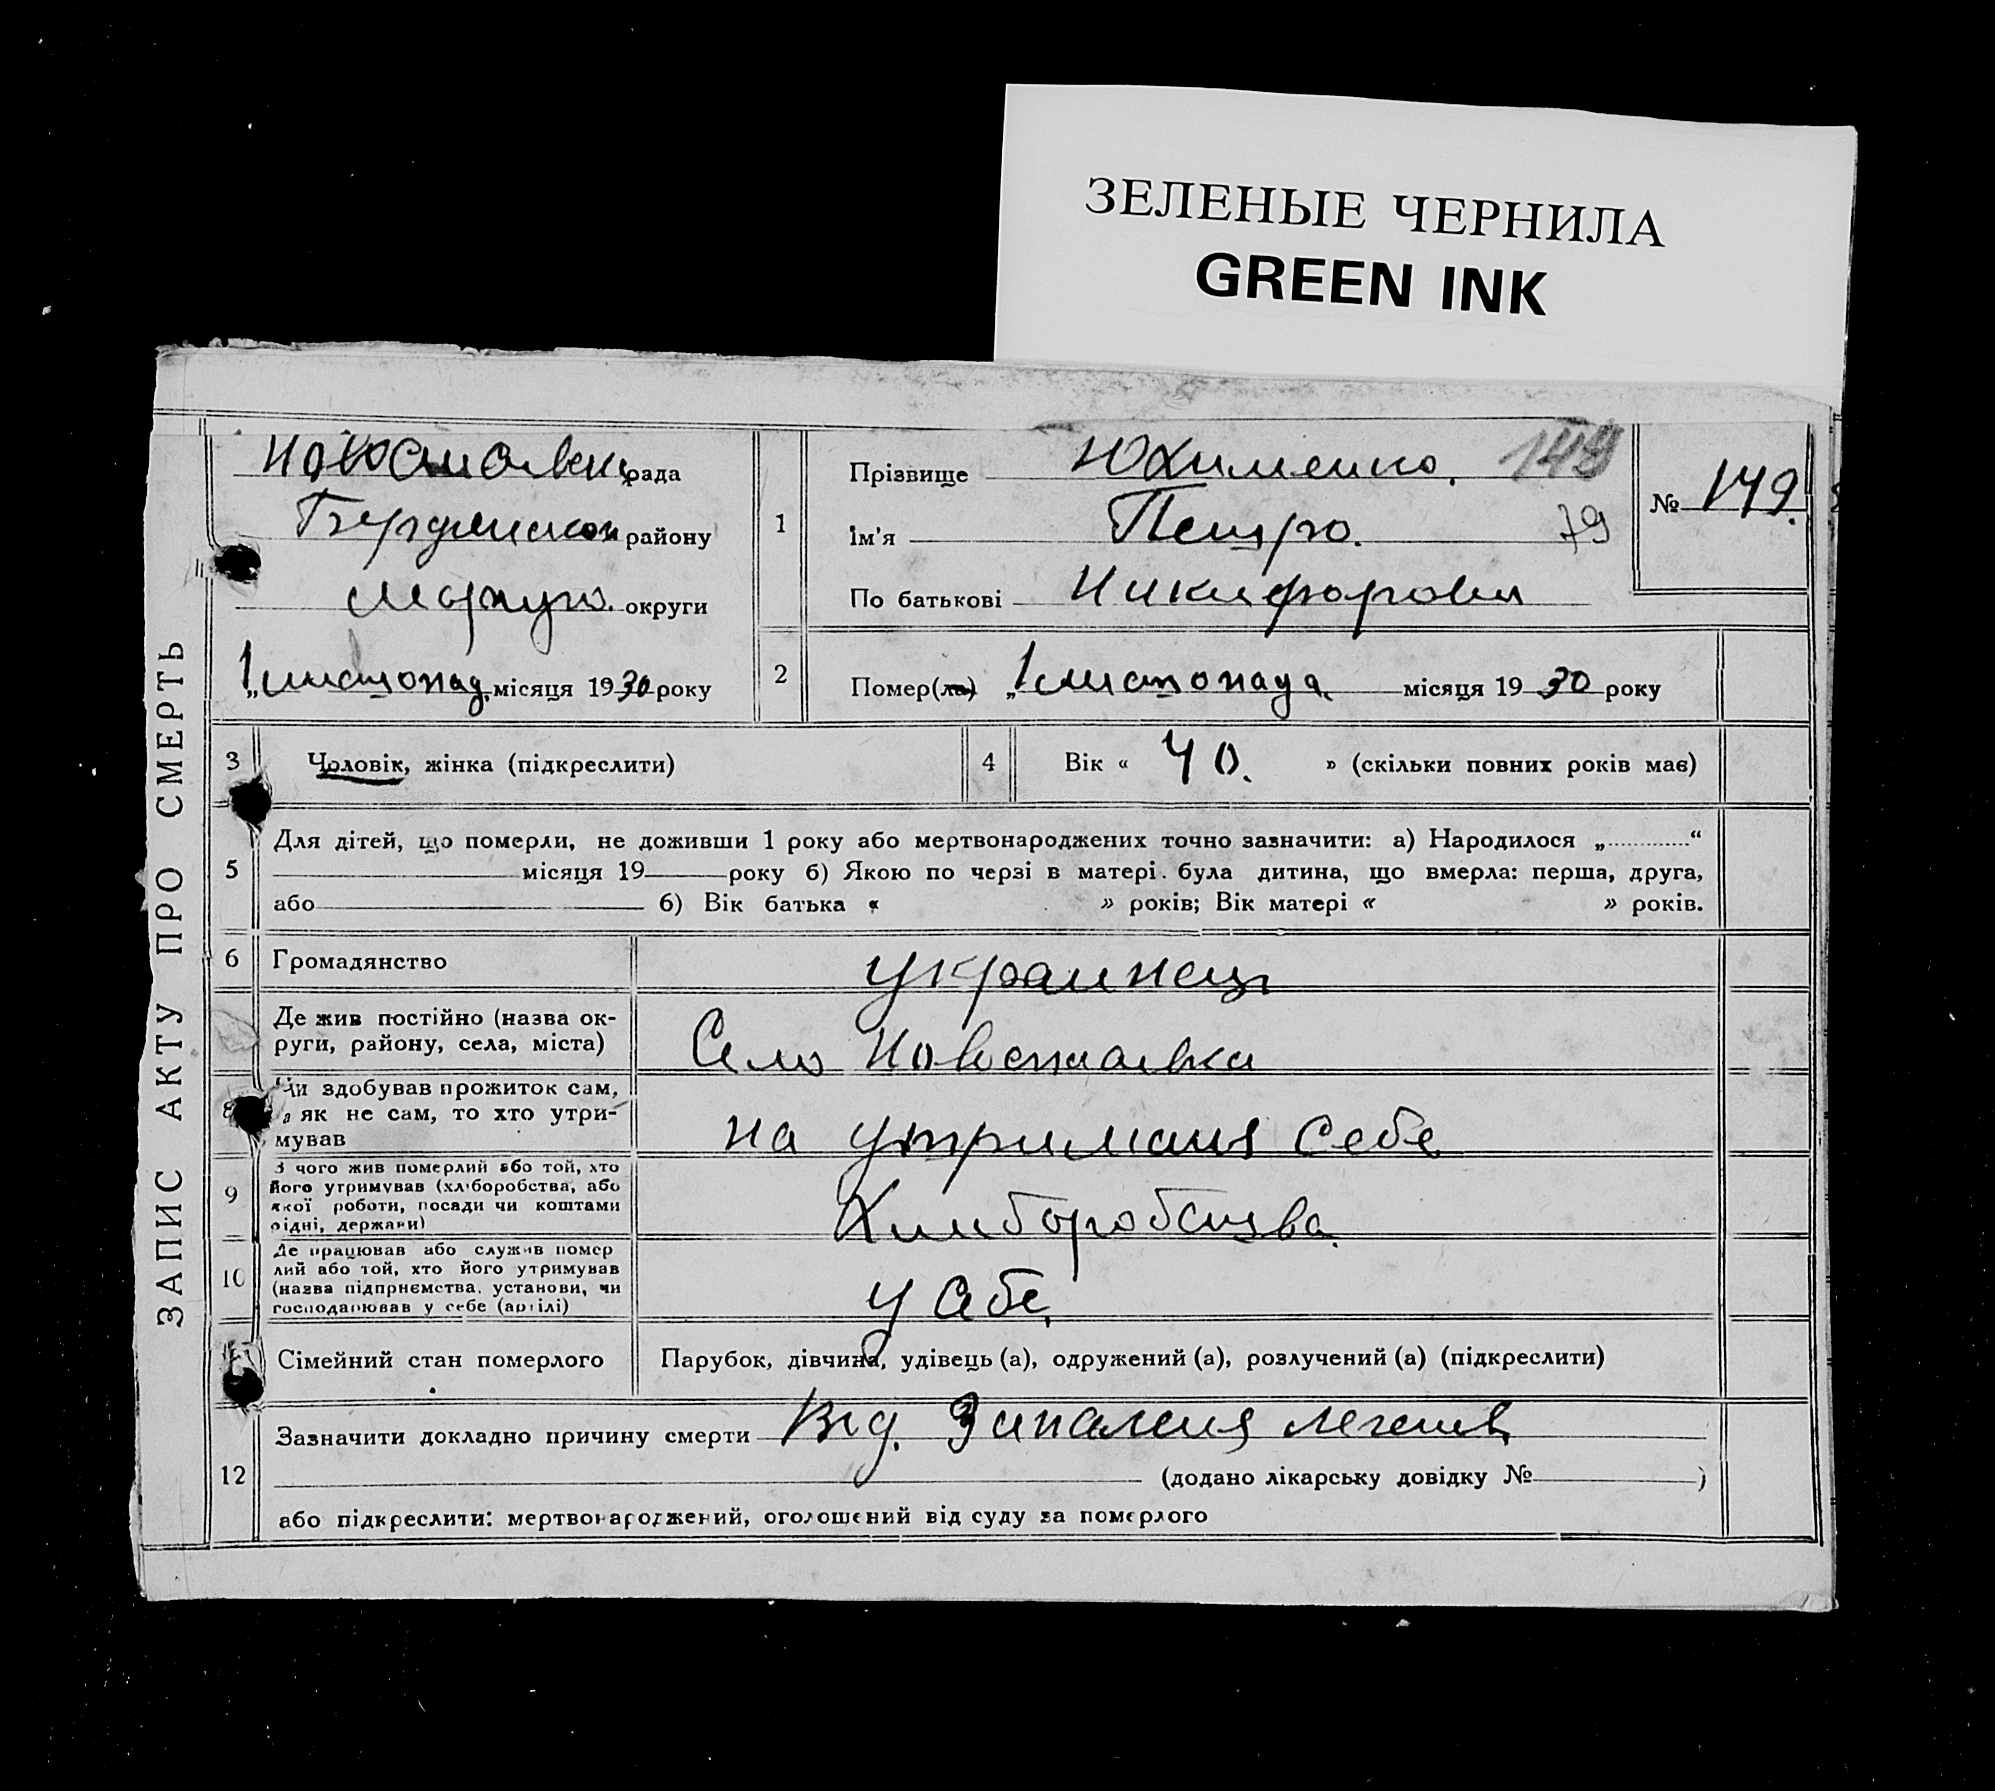 ЗЕЛЕНЫЕ ЧЕРНИЛА
GREEN INK
ЗАПИС АКТУ ПРО СМЕРТЬ
рада
району
округи
„1 листопад. місяця 1930 року
1
Прізвище Юхименко. 149
Ім'я Петро. 79
По батькові Никифорови
№ 149.
2
Помер(ла) „1 листопада місяця 1930 року
3 Чоловік, жінка (підкреслити)
4 Вік « 40. » (скільки повних років має)
5 Для дітей, що померли, не доживши 1 року або мертвонароджених точно зазначити: а) Народилося „ “
місяця 19 року б) Якою по черзі в матері була дитина, що вмерла: перша, друга,
або б) Вік батька « » років; Вік матері « » років.
6 Громадянство украинець
Де жив постійно (назва ок-
руги, району, села, міста) Село Новоспаавка
8 Чи здобував прожиток сам,
а як не сам, то хто утри-
мував на утриманя себе
9 З чого жив померлий або той, хто
його утримував (хліборобства, або
якої роботи, посади чи коштами
рідні, держави) Хлиборобства.
10 Де працював або служив помер
лий або той, хто його утримував
(назва підприємства, установи, чи
господарював у себе (артілі) у себе,
Сімейний стан померлого Парубок, дівчина, удівець (а), одружений (а), розлучений (а) (підкреслити)
12 Зазначити докладно причину смерти Від. Запаленя легенів
(додано лікарську довідку № )
або підкреслити: мертвонароджений, оголошений від суду за померлого